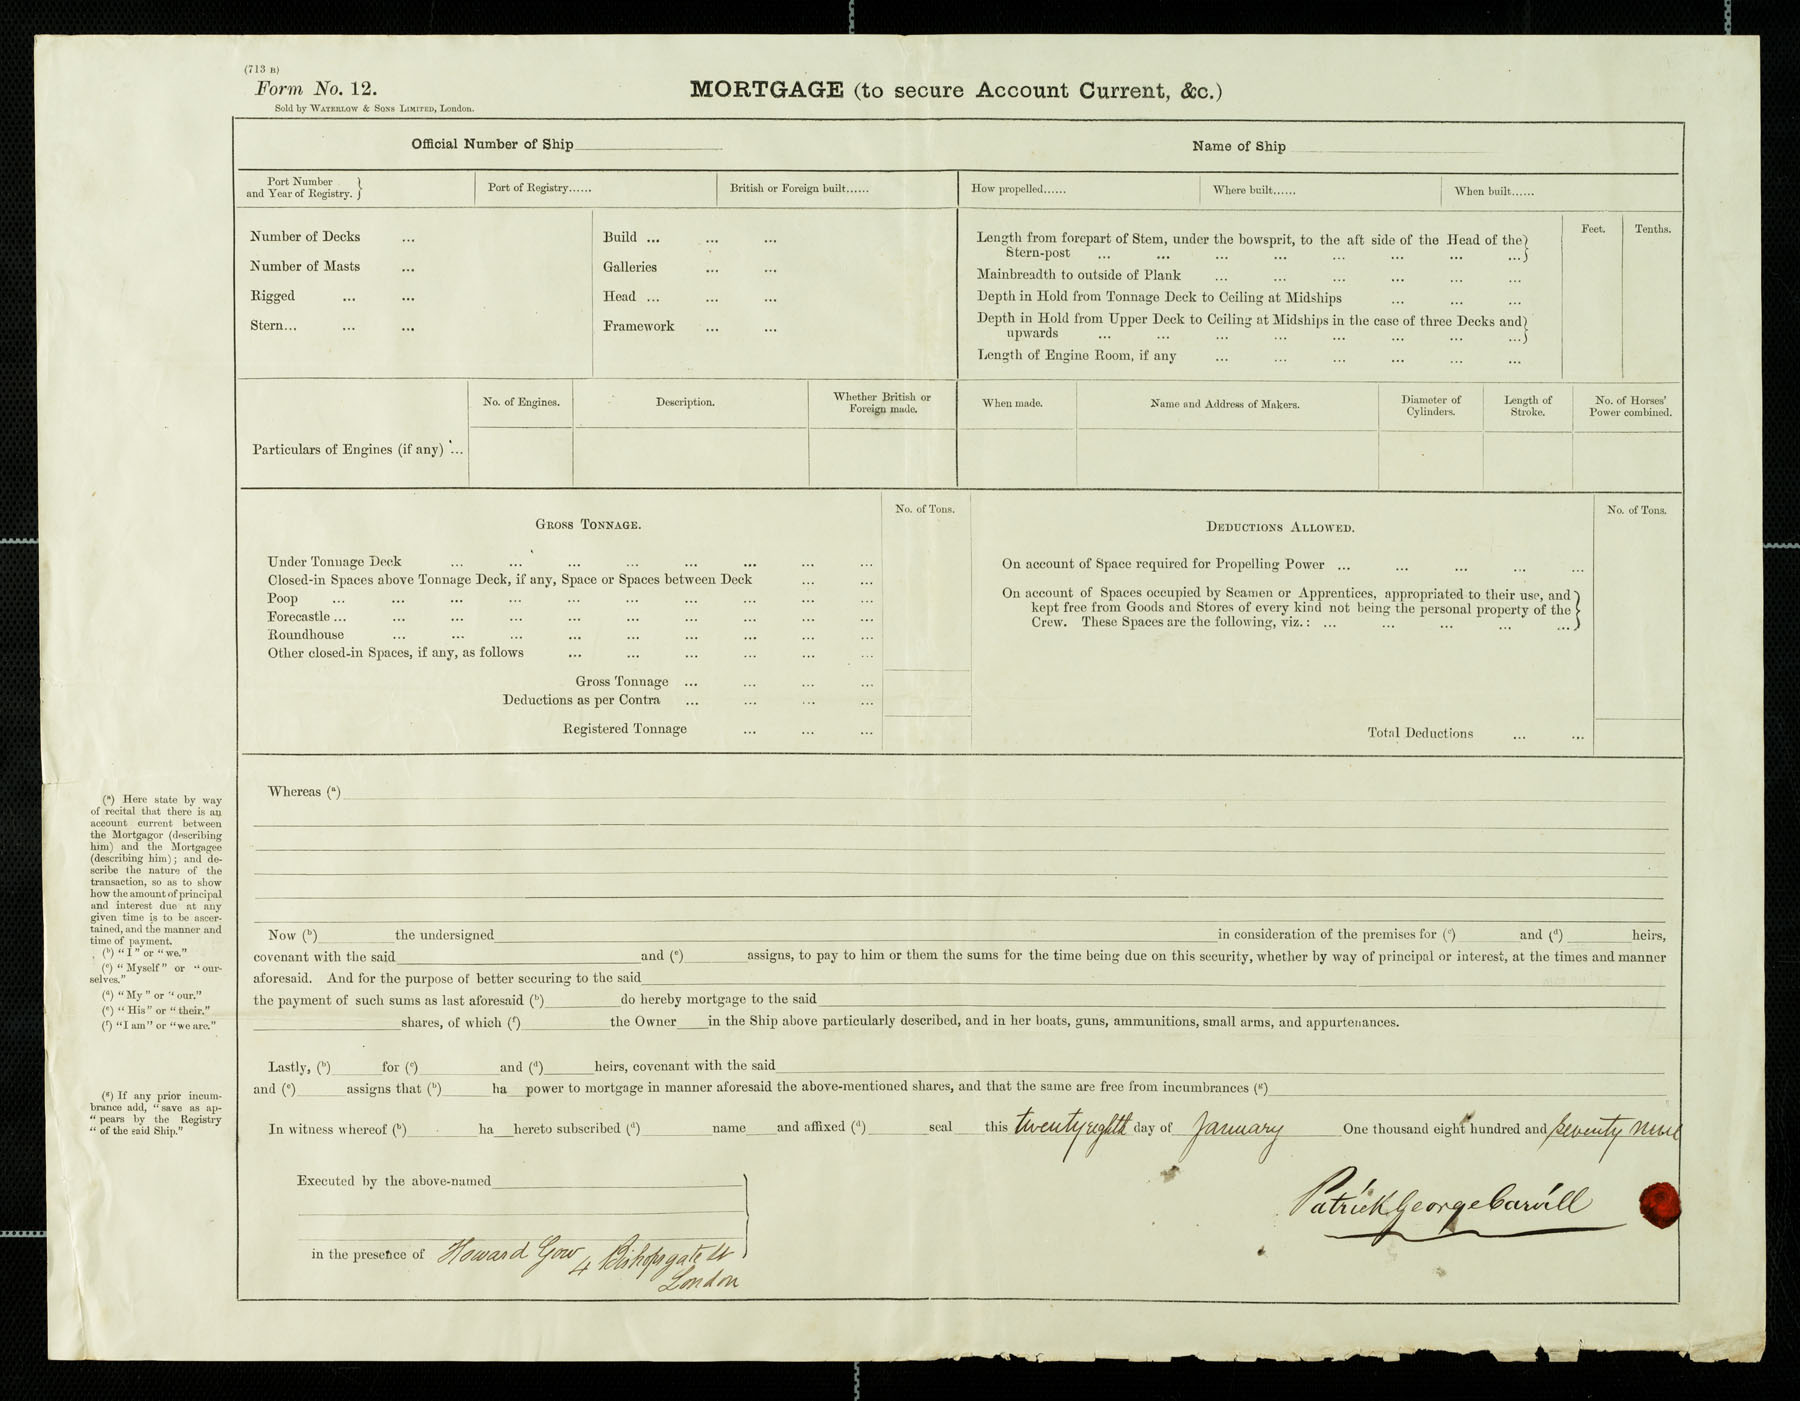 (713 B)
Form No. 12.
Sold by WATERLOW & SONS LIMITED, London.
MORTGAGE (to secure Account Current, &c.)
Official Number of Ship
Name of Ship
Port Number
and Year of Registry. }
Port of Registry......
British or Foreign built......
How propelled......
Where built......
When built......
Number of Decks ...
Number of Masts ...
Rigged ... ...
Stern... ... ...
Build ... ... ...
Galleries ... ...
Head ... ... ...
Framework ... ...
Feet. Tenths.
Length from forepart of Stem, under the bowsprit, to the aft side of the Head of the }
Stern-post ... ... ... ... ... ... ... ...
Mainbreadth to outside of Plank ... ... ... ... ... ...
Depth in Hold from Tonnage Deck to Ceiling at Midships ... ... ...
Depth in Hold from Upper Deck to Ceiling at Midships in the case of three Decks and }
upwards ... ... ... ... ... ... ... ...
Length of Engine Room, if any ... ... ... ... ... ...
Particulars of Engines (if any) ...
No. of Engines.
Description.
Whether British or
Foreign made.
When made.
Name and Address of Makers.
Diameter of
Cylinders.
Length of
Stroke.
No. of Horses'
Power combined.
GROSS TONNAGE.
No. of Tons.
Under Tonnage Deck ... ... ... ... ... ... ... ...
Closed-in Spaces above Tonnage Deck, if any, Space or Spaces between Deck ... ...
Poop ... ... ... ... ... ... ... ... ... ...
Forecastle ... ... ... ... ... ... ... ... ... ...
Roundhouse ... ... ... ... ... ... ... ... ...
Other closed-in Spaces, if any, as follows ... ... ... ... ... ...
Gross Tonnage ... ... ... ...
Deductions as per Contra ... ... ... ...
Registered Tonnage ... ... ...
DEDUCTIONS ALLOWED.
No. of Tons.
On account of Space required for Propelling Power ... ... ... ... ...
On account of Spaces occupied by Seamen or Apprentices, appropriated to their use, and }
kept free from Goods and Stores of every kind not being the personal property of the
Crew. These Spaces are the following, viz.: ... ... ... ... ...
Total Deductions ... ...
(a) Here state by way
of recital that there is an
account current between
the Mortgagor (describing
him) and the Mortgagee
(describing him); and de-
scribe the nature of the
transaction, so as to show
how the amount of principal
and interest due at any
given time is to be ascer-
tained, and the manner and
time of payment.
(b) "I" or "we."
(c) "Myself" or "our-
selves."
(d) "My" or "our."
(e) "His" or "their."
(f) "I am" or "we are."
(g) If any prior incum-
brance add, "save as ap-
"pears by the Registry
"of the said Ship."
Whereas (a)
Now (b) the undersigned in consideration of the premises for (c) and (d) heirs,
covenant with the said and (e) assigns, to pay to him or them the sums for the time being due on this security, whether by way of principal or interest, at the times and manner
aforesaid. And for the purpose of better securing to the said
the payment of such sums as last aforesaid (b) do hereby mortgage to the said
shares, of which (f) the Owner in the Ship above particularly described, and in her boats, guns, ammunitions, small arms, and appurtenances.
Lastly, (b) for (c) and (d) heirs, covenant with the said
and (e) assigns that (b) ha power to mortgage in manner aforesaid the above-mentioned shares, and that the same are free from incumbrances (g)
In witness whereof (b) ha hereto subscribed (d) name and affixed (d) seal this twentyeighth day of January One thousand eight hundred and seventy nine
Executed by the above-named
Patrick George Carvill
in the presence of Howard Gow 4 Bishopsgate St
London